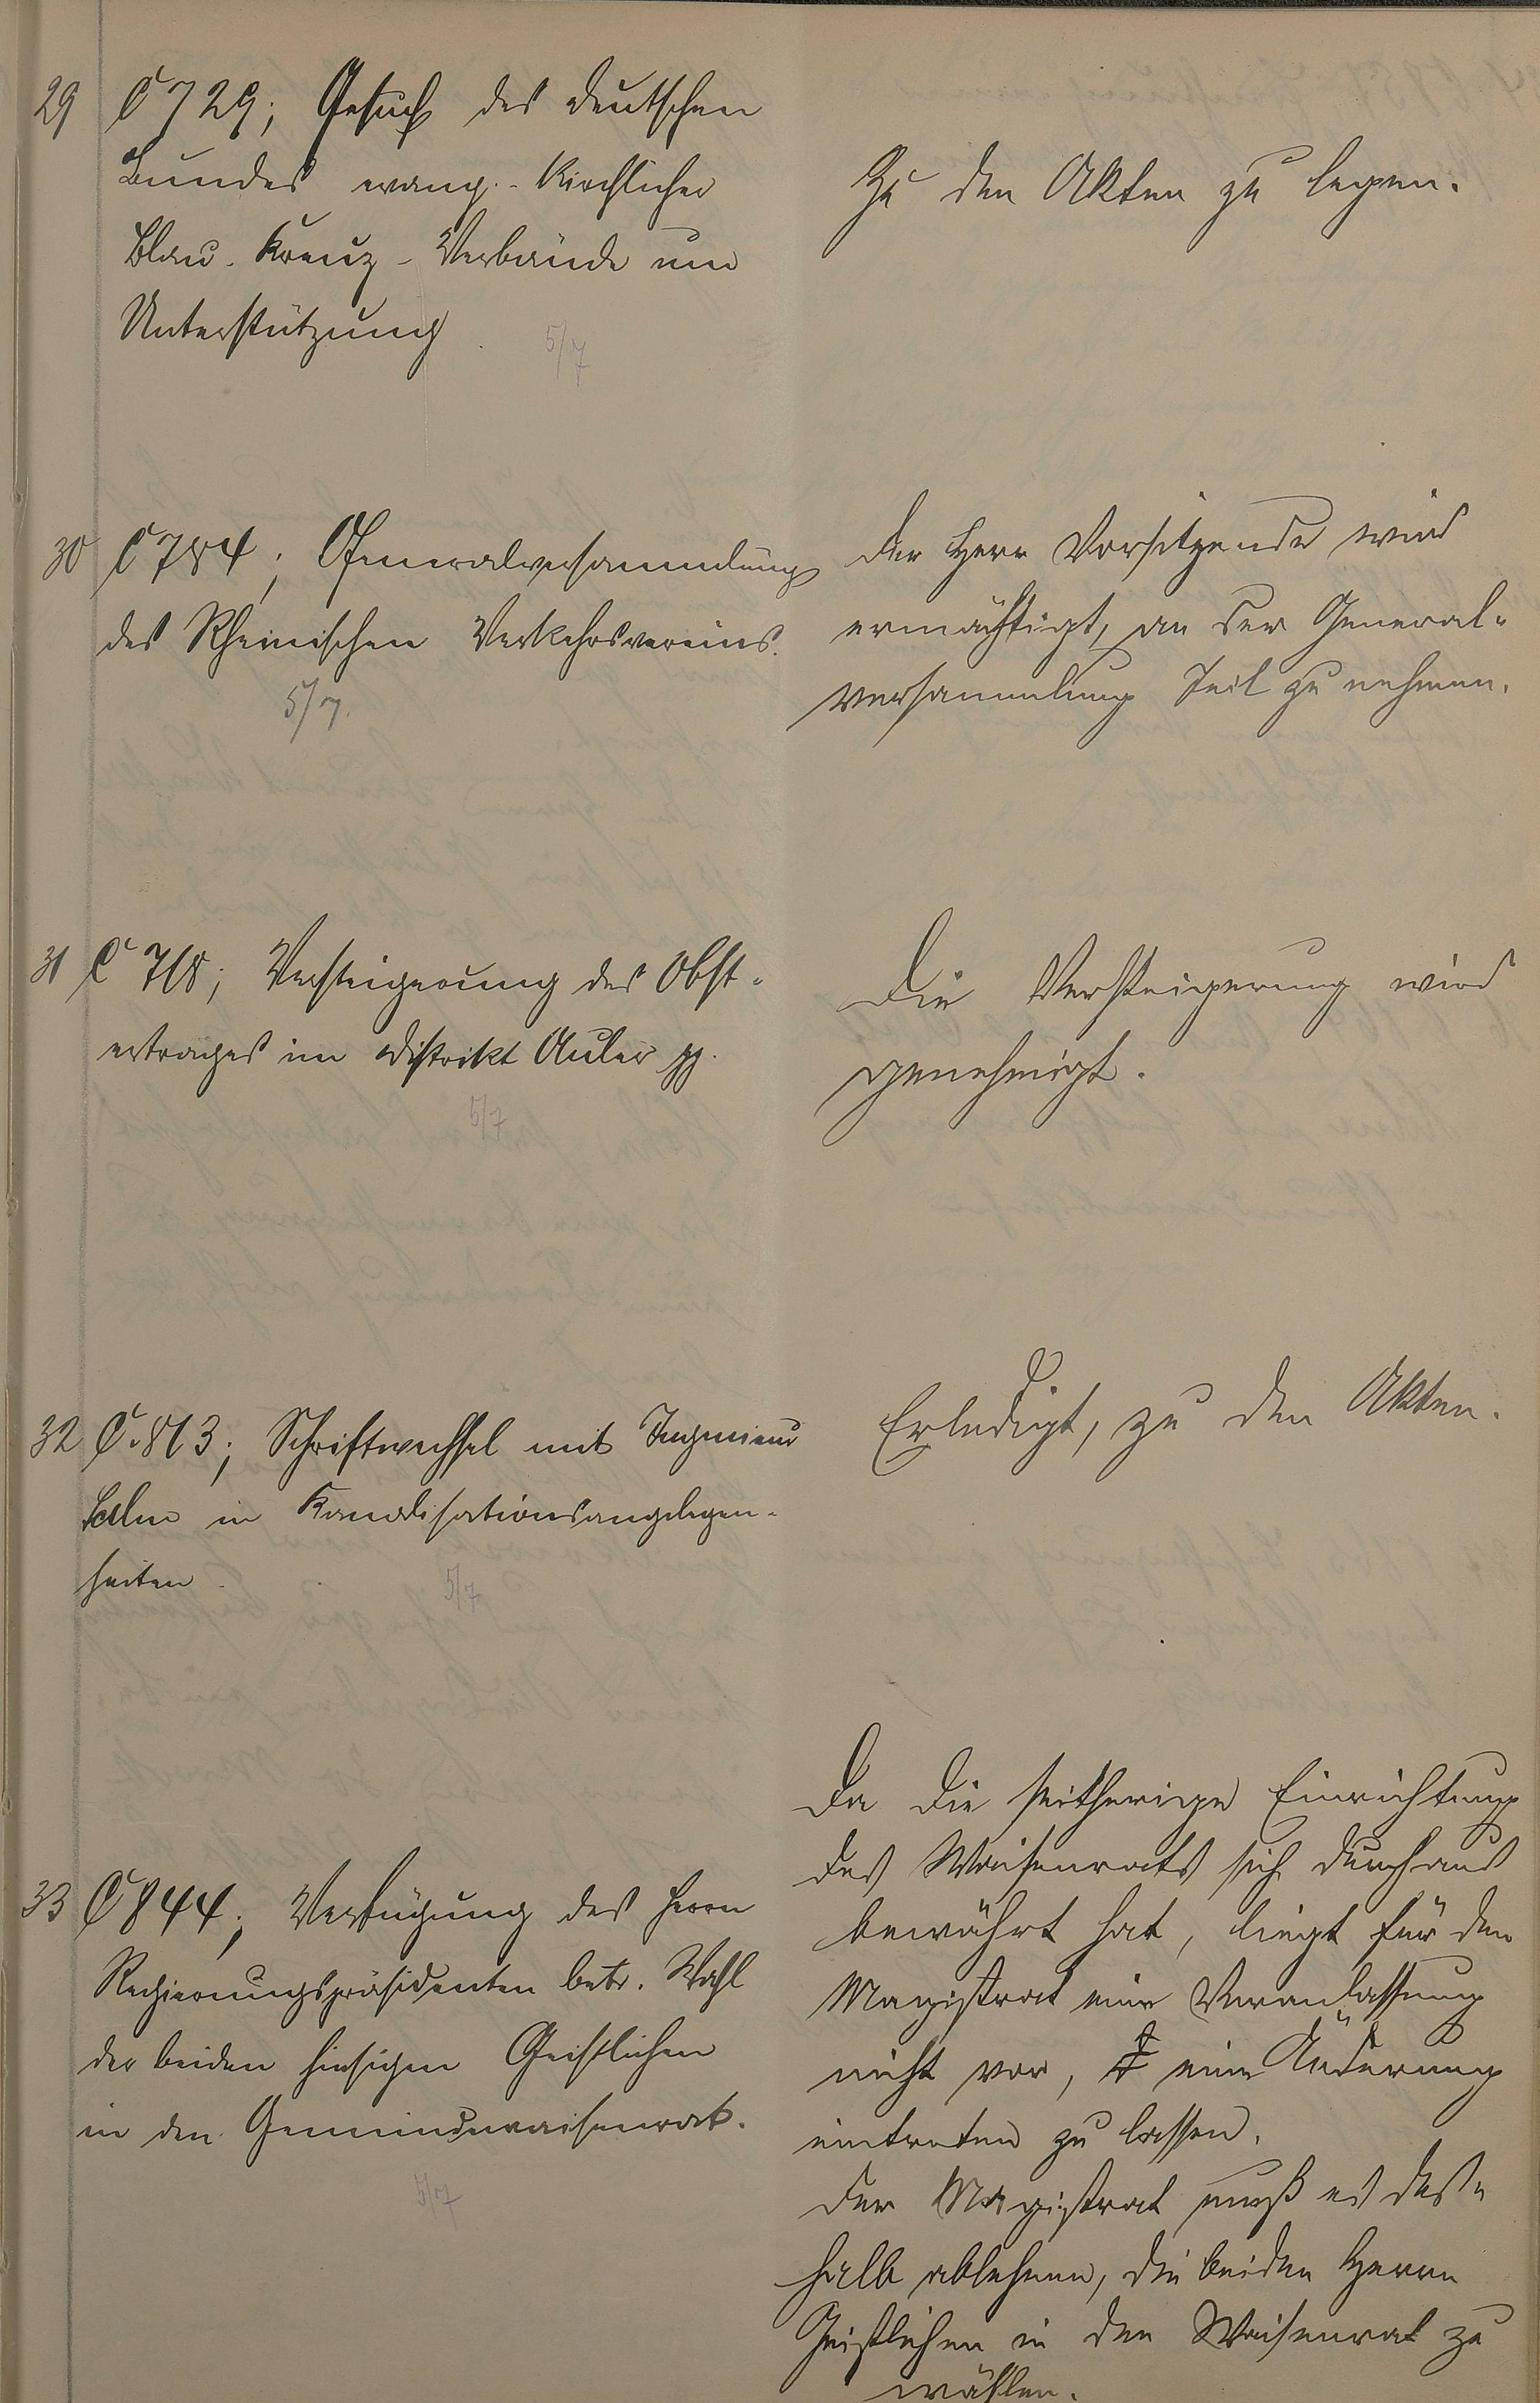 29 C 729; Gesuch des deutschen
Bundes evang.-Kirchlicher
Blau-Kreuz-Verbände um
Unterstützung.
5/7
Zu den Akten zu legen.
30 C 784; Generalversammlung
des Rheinischen Verkehrsvereins.
5/7.
Der Herr Vorsitzende wird
ermächtigt, an der General-
versammlung Teil zu nehmen.
31 C 718; Versteigerung des Obst-
ertrages im Distrikt Auler pp.
5/7
Die Versteigerung wird
genehmigt.
32 C. 813; Schriftwechsel mit Ingenieur
in Kanalisationsangelegen-
heiten.
5/7
Erledigt, zu den Akten.
33 C 844; Verfügung des Herrn
Regierungspräsidenten betr. Wahl
der beiden hiesigen Geistlichen
in den Gemeindewaisenrat.
5/7
Da die seitherige Einrichtung
des Waisenrats sich durchaus
bewährt hat, liegt für den
Magistrat eine Veranlassung
nicht vor, eine Änderung
eintreten zu lassen.
Der Magistrat muß es des-
halb ablehnen, die beiden Herrn
Geistlichen in den Waisenrat zu
wählen.